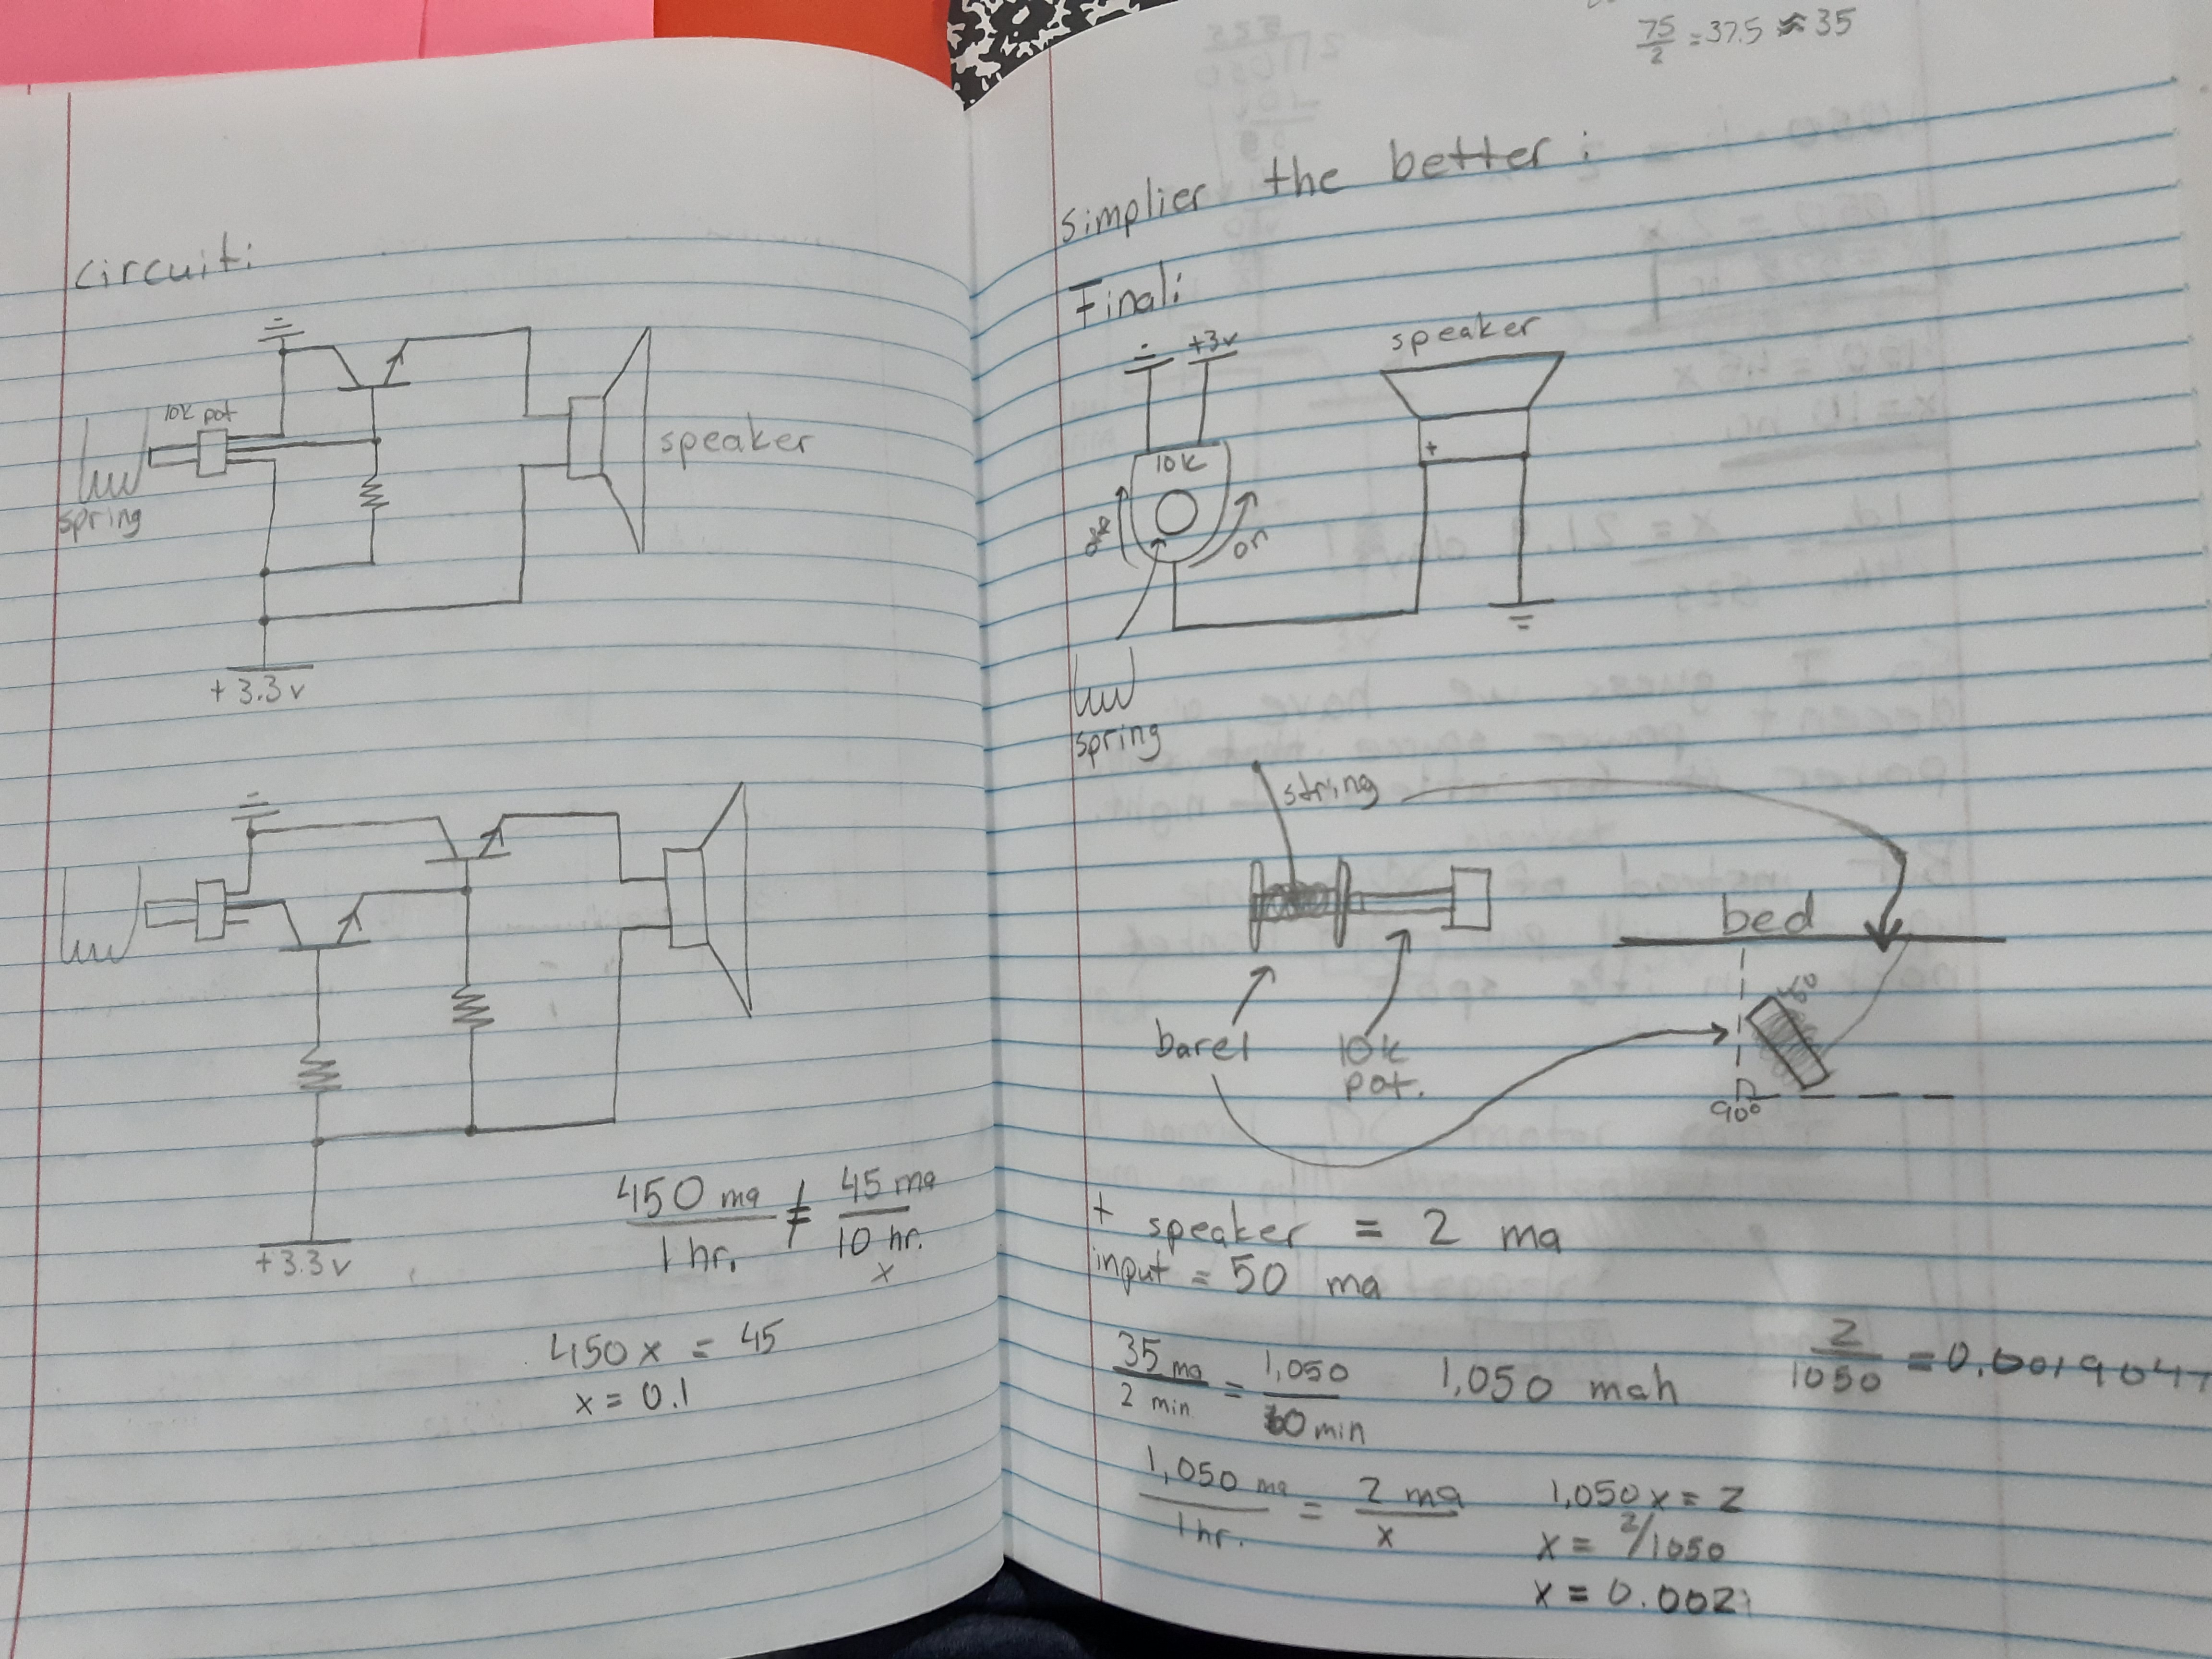 Circuit:
speaker
10k pot
spring
+3.3v
+3.3v
450 ma ≠ 45 ma
1 hr. 10 hr.
x
450x = 45
x = 0.1
75/2 = 37.5 ≈ 35
simplier the better:
Final:
+3v
speaker
10k
+
on
spring
string
bed
barel
10k
pot.
90°
+
speaker = 2 ma
input = 50 ma
35 ma / 2 min = 1,050 / 60 min
1,050 mah
2/1050 = 0.0019047
1,050 ma / 1 hr. = 2 ma / x
1,050x = 2
x = 2/1050
x = 0.002